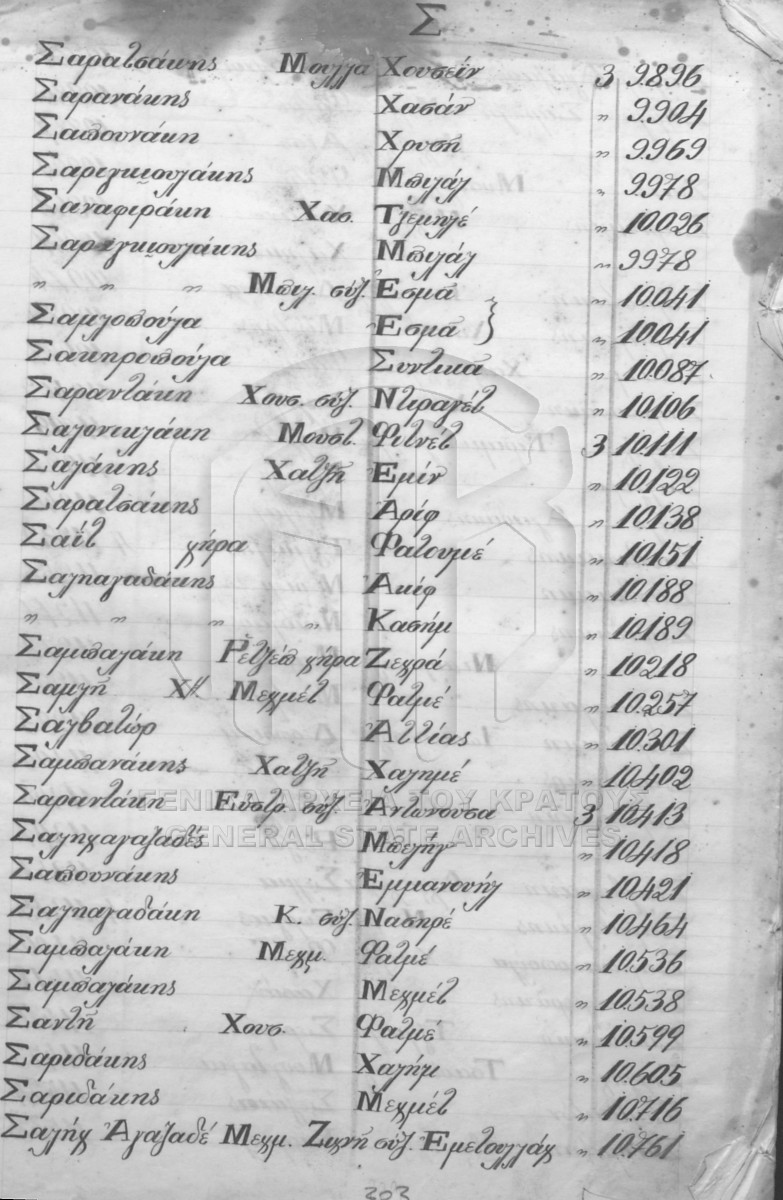 Σ
Σαρατσάκης Μουλλα Χουσεΐν 3 9.896
Σαρανάκης Χασάν " 9.904
Σαπουνάκη Χρυσή " 9.969
Σαριγκιουλάκης Μπιλάλ " 9.978
Σαναφιράκη Χασ. Τλεμηλέ " 10.026
Σαριγκιουλάκης Μπιλάλ " 9978
" " " Μπιλ. σύζ. Εσμά " 10.041
Σαμλοπούλα Εσμά } " 10.041
Σακηροπούλα Συντικά " 10.087
Σαραντάκη Χουσ. σύζ. Ντιραγέτ " 10.106
Σαλονικλάκη Μουστ. Φιτνέτ 3 10.111
Σαλάκης Χατζή Εμίν " 10.122
Σαρατσάκης Αρίφ " 10.138
Σαΐτ χήρα Φατουμέ " 10.151
Σαληαγαδάκης Ακίφ " 10.188
" " " " Κασήμ " 10.189
Σαμπαλάκη Ρετζέπ χήρα Ζεχρά " 10.218
Σαμλή Χ// Μεχμέτ Φατμέ " 10.257
Σαλβατώρ Αττίας " 10.301
Σαμπανάκης Χατζή Χαλημέ " 10.402
Σαραντάκη Ευστρ. σύζ. Αντώνουσα 3 10.413
Σαληχαγαζαδές Μπελήγ " 10.418
Σαπουνάκης Εμμανουήλ " 10.421
Σαληαγαδάκη Κ. σύζ. Νασηρέ " 10.464
Σαμπαλάκη Μεχμ. Φατμέ " 10.536
Σαμπαλάκης Μεχμέτ " 10.538
Σαντή Χουσ. Φατμέ " 10.599
Σαριδάκης Χαλήμ " 10.605
Σαριδάκης Μεχμέτ " 10.716
Σαλήχ Αγαζαδέ Μεχμ. Ζιχνή σύζ. Εμετουλλάχ " 10.761
ΓΕΝΙΚΑ ΑΡΧΕΙΑ ΤΟΥ ΚΡΑΤΟΥΣ
GENERAL STATE ARCHIVES
303